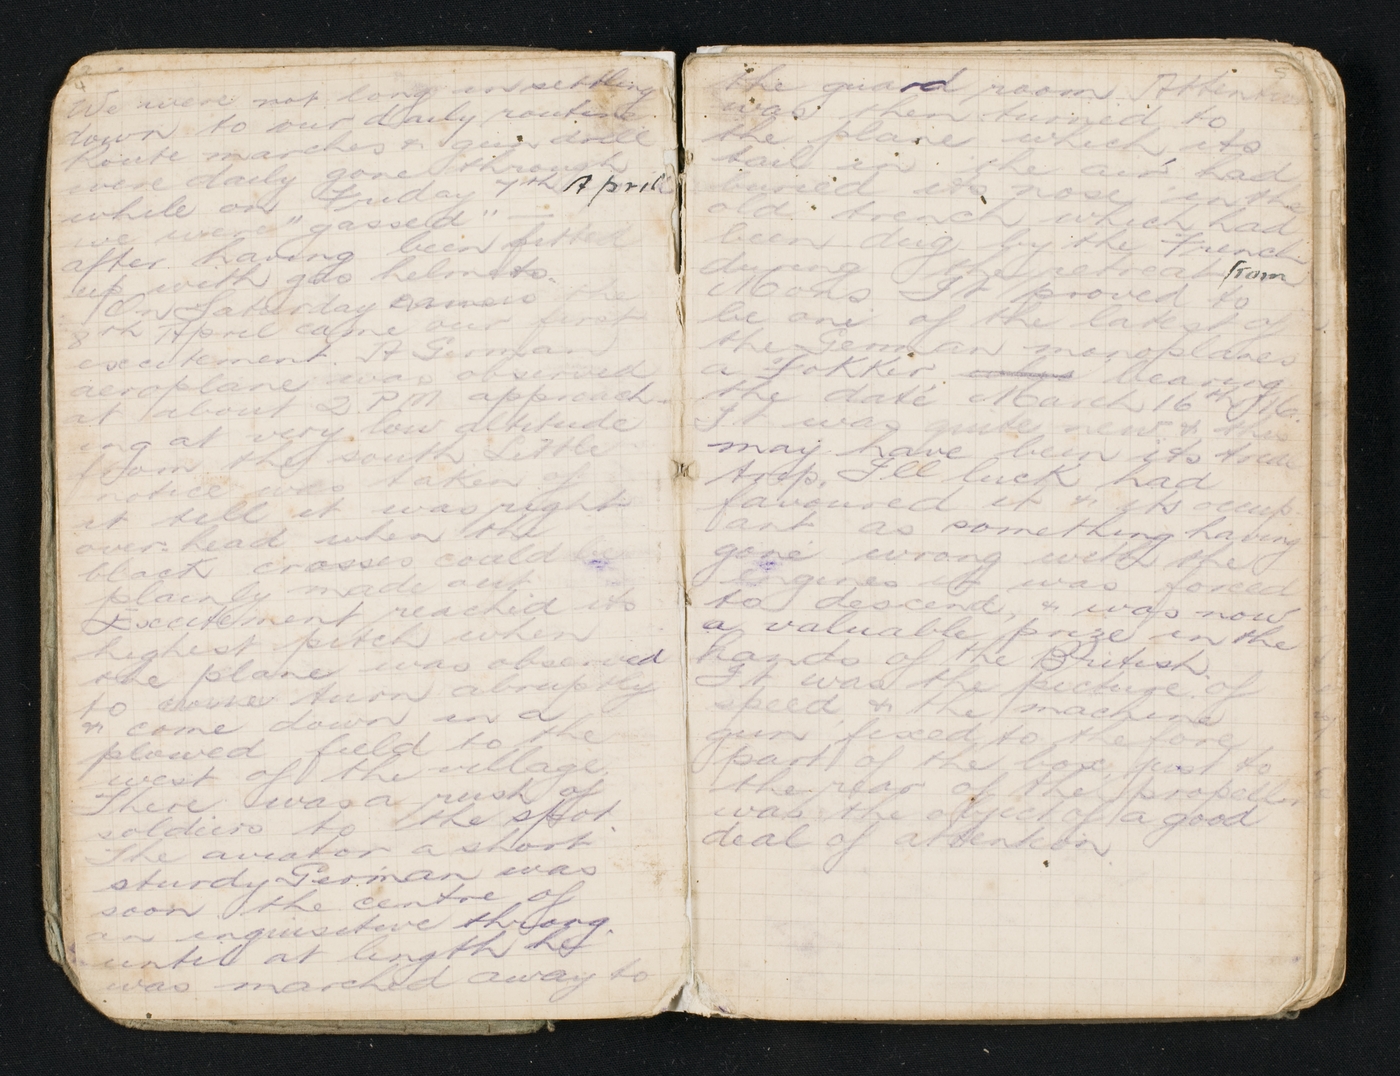 4
We were not long in settling
down to our daily routine.
Route marches & gun drill
were daily gone through
while on Friday 7th April
we were "gassed"
after having been fitted
up with gas helmets.
On Saturday the
8th April came our first
excitement. A German
aeroplane was observed
at about 2 P.M. approach-
ing at very low altitude
from the south. Little
notice was taken of
it till it was right
over-head when the
black crosses could be
plainly made out.
Excitement reached its
highest pitch when
the plane was observed
to come turn abruptly
& come down in a
plowed field to the
west of the village.
There was a rush of
soldiers to the spot.
The aviator a short
sturdy German was
soon the centre of
an inquisitive throng.
until at length he
was marched away to
5
the guard room Attention
was then turned to
the plane which its
tail in the air had
buried its nose in the
old trench which had
been dug by the French
during the retreat from
Mons. It proved to
be one of the latest of
the German monoplanes
a Fokker bearing
the date March 16th /16.
It was quite new & this
may have been its trial
trip. Ill luck had
favoured it & its occup-
ant as something having
gone wrong with the
engines it was forced
to descend, & was now
a valuable prize in the
hands of the British.
It was the picture of
speed & the machine
gun fixed to the fore
part of the box, just to
the rear of the propeller
was the object of a good
deal of attention.